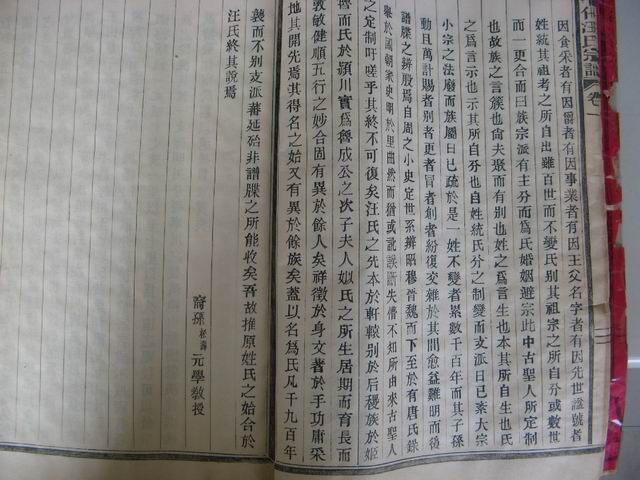 汪氏宗譜 卷一
因食采者有因爵者有因事業者有因王父名字者有因先世諡號者
姓統其祖考之所自出雖百世而不變氏别其祖宗之所自分或數世
而一更合而曰族宗派有主分而爲氏婚姻避宗此中古聖人所定制
也故族之言簇也尙夫聚而有别也姓之爲言生也本其所自生也氏
之爲言示也示其所自分也自姓統氏分之制變而支派日已紊大宗
小宗之法廢而族屬日已疏於是一姓不變者累數千百年而其子孫
動且萬計賜者别者更者冒者創者紛復變雜於其間愈益難明而後
譜牒之辨股焉自周之小史定世系辨昭穆晉魏而下至於有唐氏錄
舉於國朝家史明於里曲然而猶或訛誤斷失懵不知所由來古聖人
之定制吁嗟乎其終不可復矣汪氏之先本於軒轅别於后稷族於姬
魯而氏於潁川實爲魯成公之次子夫人姒氏之所生居期而育長而
敦敏健順五行之妙合固有異於餘人矣祥徵於身文著於手功庸采
地其開先焉其得名之始又有異於餘族矣蓋以名爲氏凡千九百年
義而不别支派蕃延殆非譜牒之所能收矣吾故推原姓氏之始合於
汪氏終其說焉
裔孫松壽元學教授